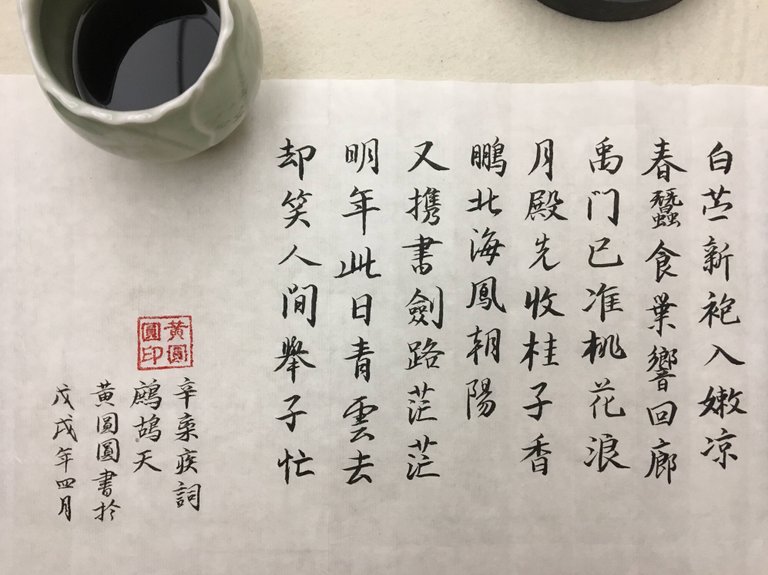 白苎新袍入嫩凉
春蠶食葉響回廊
禹门已准桃花浪
月殿先收桂子香
鵬北海鳳朝陽
又携書劍路茫茫
明年此日青雲去
却笑人间舉子忙
辛棄疾詞
鷓鴣天
黄圓圓書於
戊戌年四月
黄圓圓印